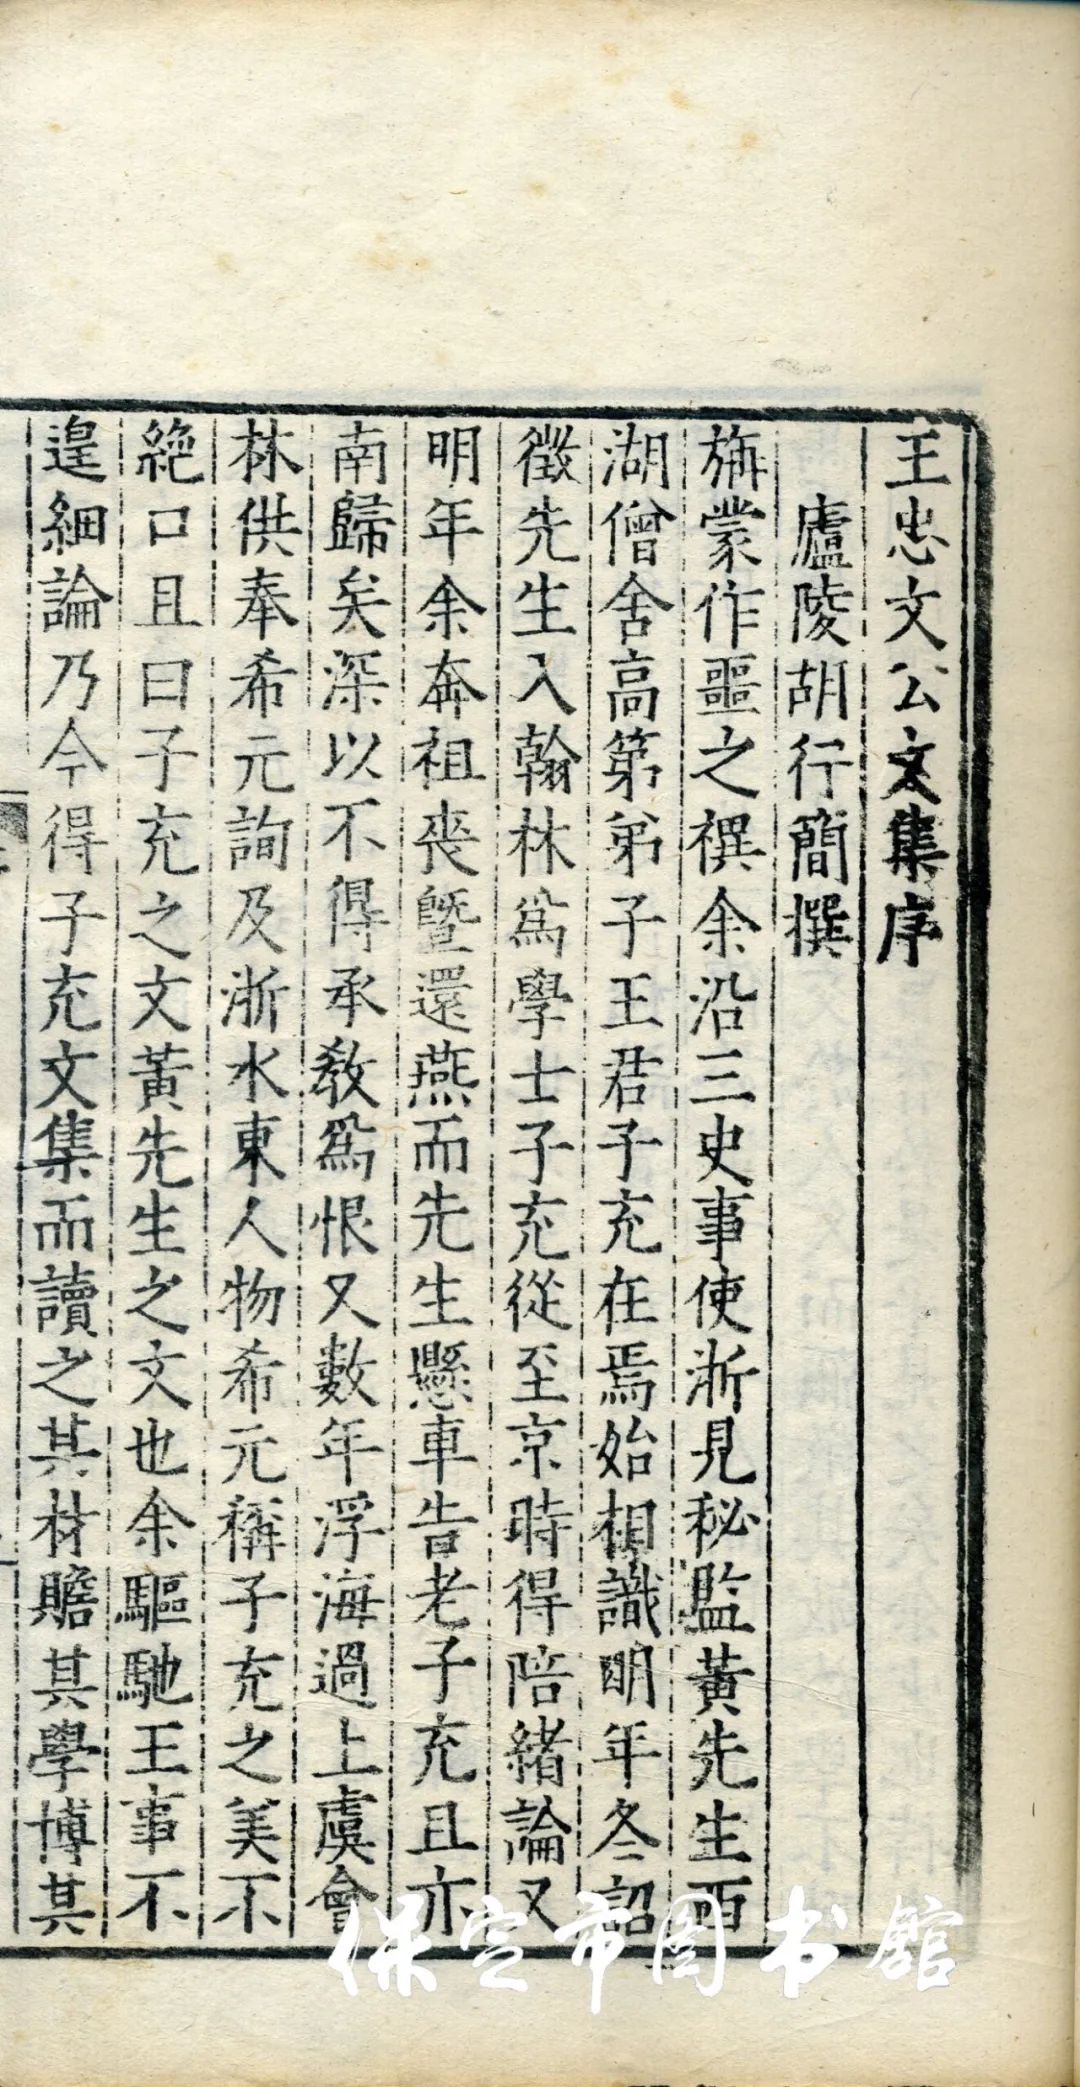 王忠文公文集序
廬陵胡行簡撰
旃蒙作噩之禩余沿三史事使浙見秘監黃先生西
湖僧舍高第弟子王君子充在焉始相識明年冬詔
徵先生入翰林為學士子充從至京時得陪緒論又
明年余奔祖喪曁還燕而先生懸車告老子充且亦
南歸矣深以不得承教為恨又數年浮海過上虞會
林供奉希元詢及浙水東人物希元稱子充之美不
絶口且曰子充之文黃先生之文也余驅馳王事不
遑細論乃今得子充文集而讀之其材贍其學博其
保定市图书馆